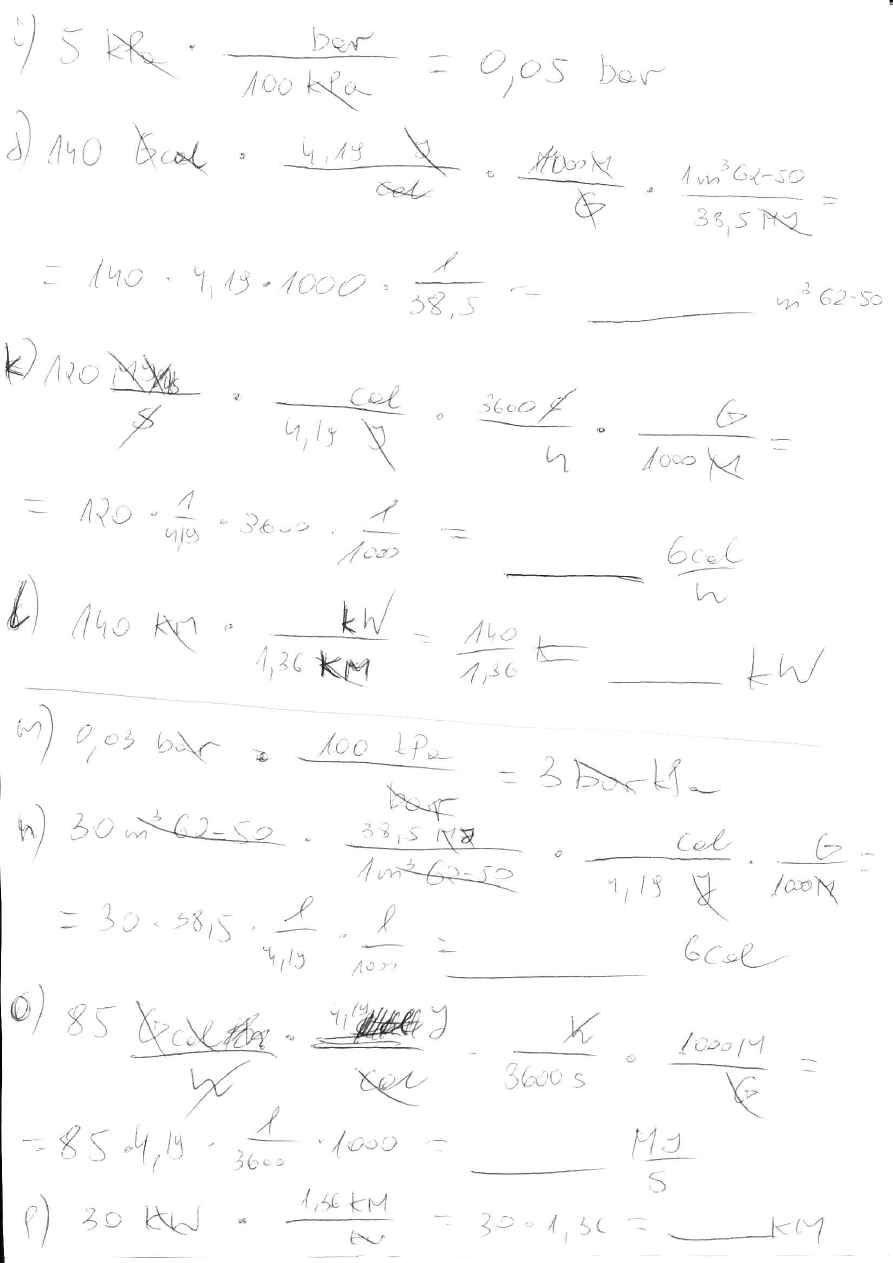 i) 5 kPa · bar / 100 kPa = 0,05 bar
j) 140 Gcal · 4,19 J / cal · 1000 M / G · 1 m³ GZ-50 / 38,5 MJ =
= 140 · 4,19 · 1000 · 1 / 38,5 = ______ m³ GZ-50
k) 120 MJ / s · cal / 4,19 J · 3600 s / h · G / 1000 M =
= 120 · 1 / 4,19 · 3600 · 1 / 1000 = ______ Gcal / h
l) 140 KM · kW / 1,36 KM = 140 / 1,36 = ______ kW
m) 0,03 bar · 100 kPa / bar = 3 bar kPa
n) 30 m³ GZ-50 · 38,5 MJ / 1 m³ GZ-50 · cal / 4,19 J · G / 1000 M =
= 30 · 38,5 · 1 / 4,19 · 1 / 1000 = ______ Gcal
o) 85 Gcal / h · 4,19 J / cal · h / 3600 s · 1000 M / G =
= 85 · 4,19 · 1 / 3600 · 1000 = ______ MJ / s
p) 30 kW · 1,36 KM / kW = 30 · 1,36 = ______ KM